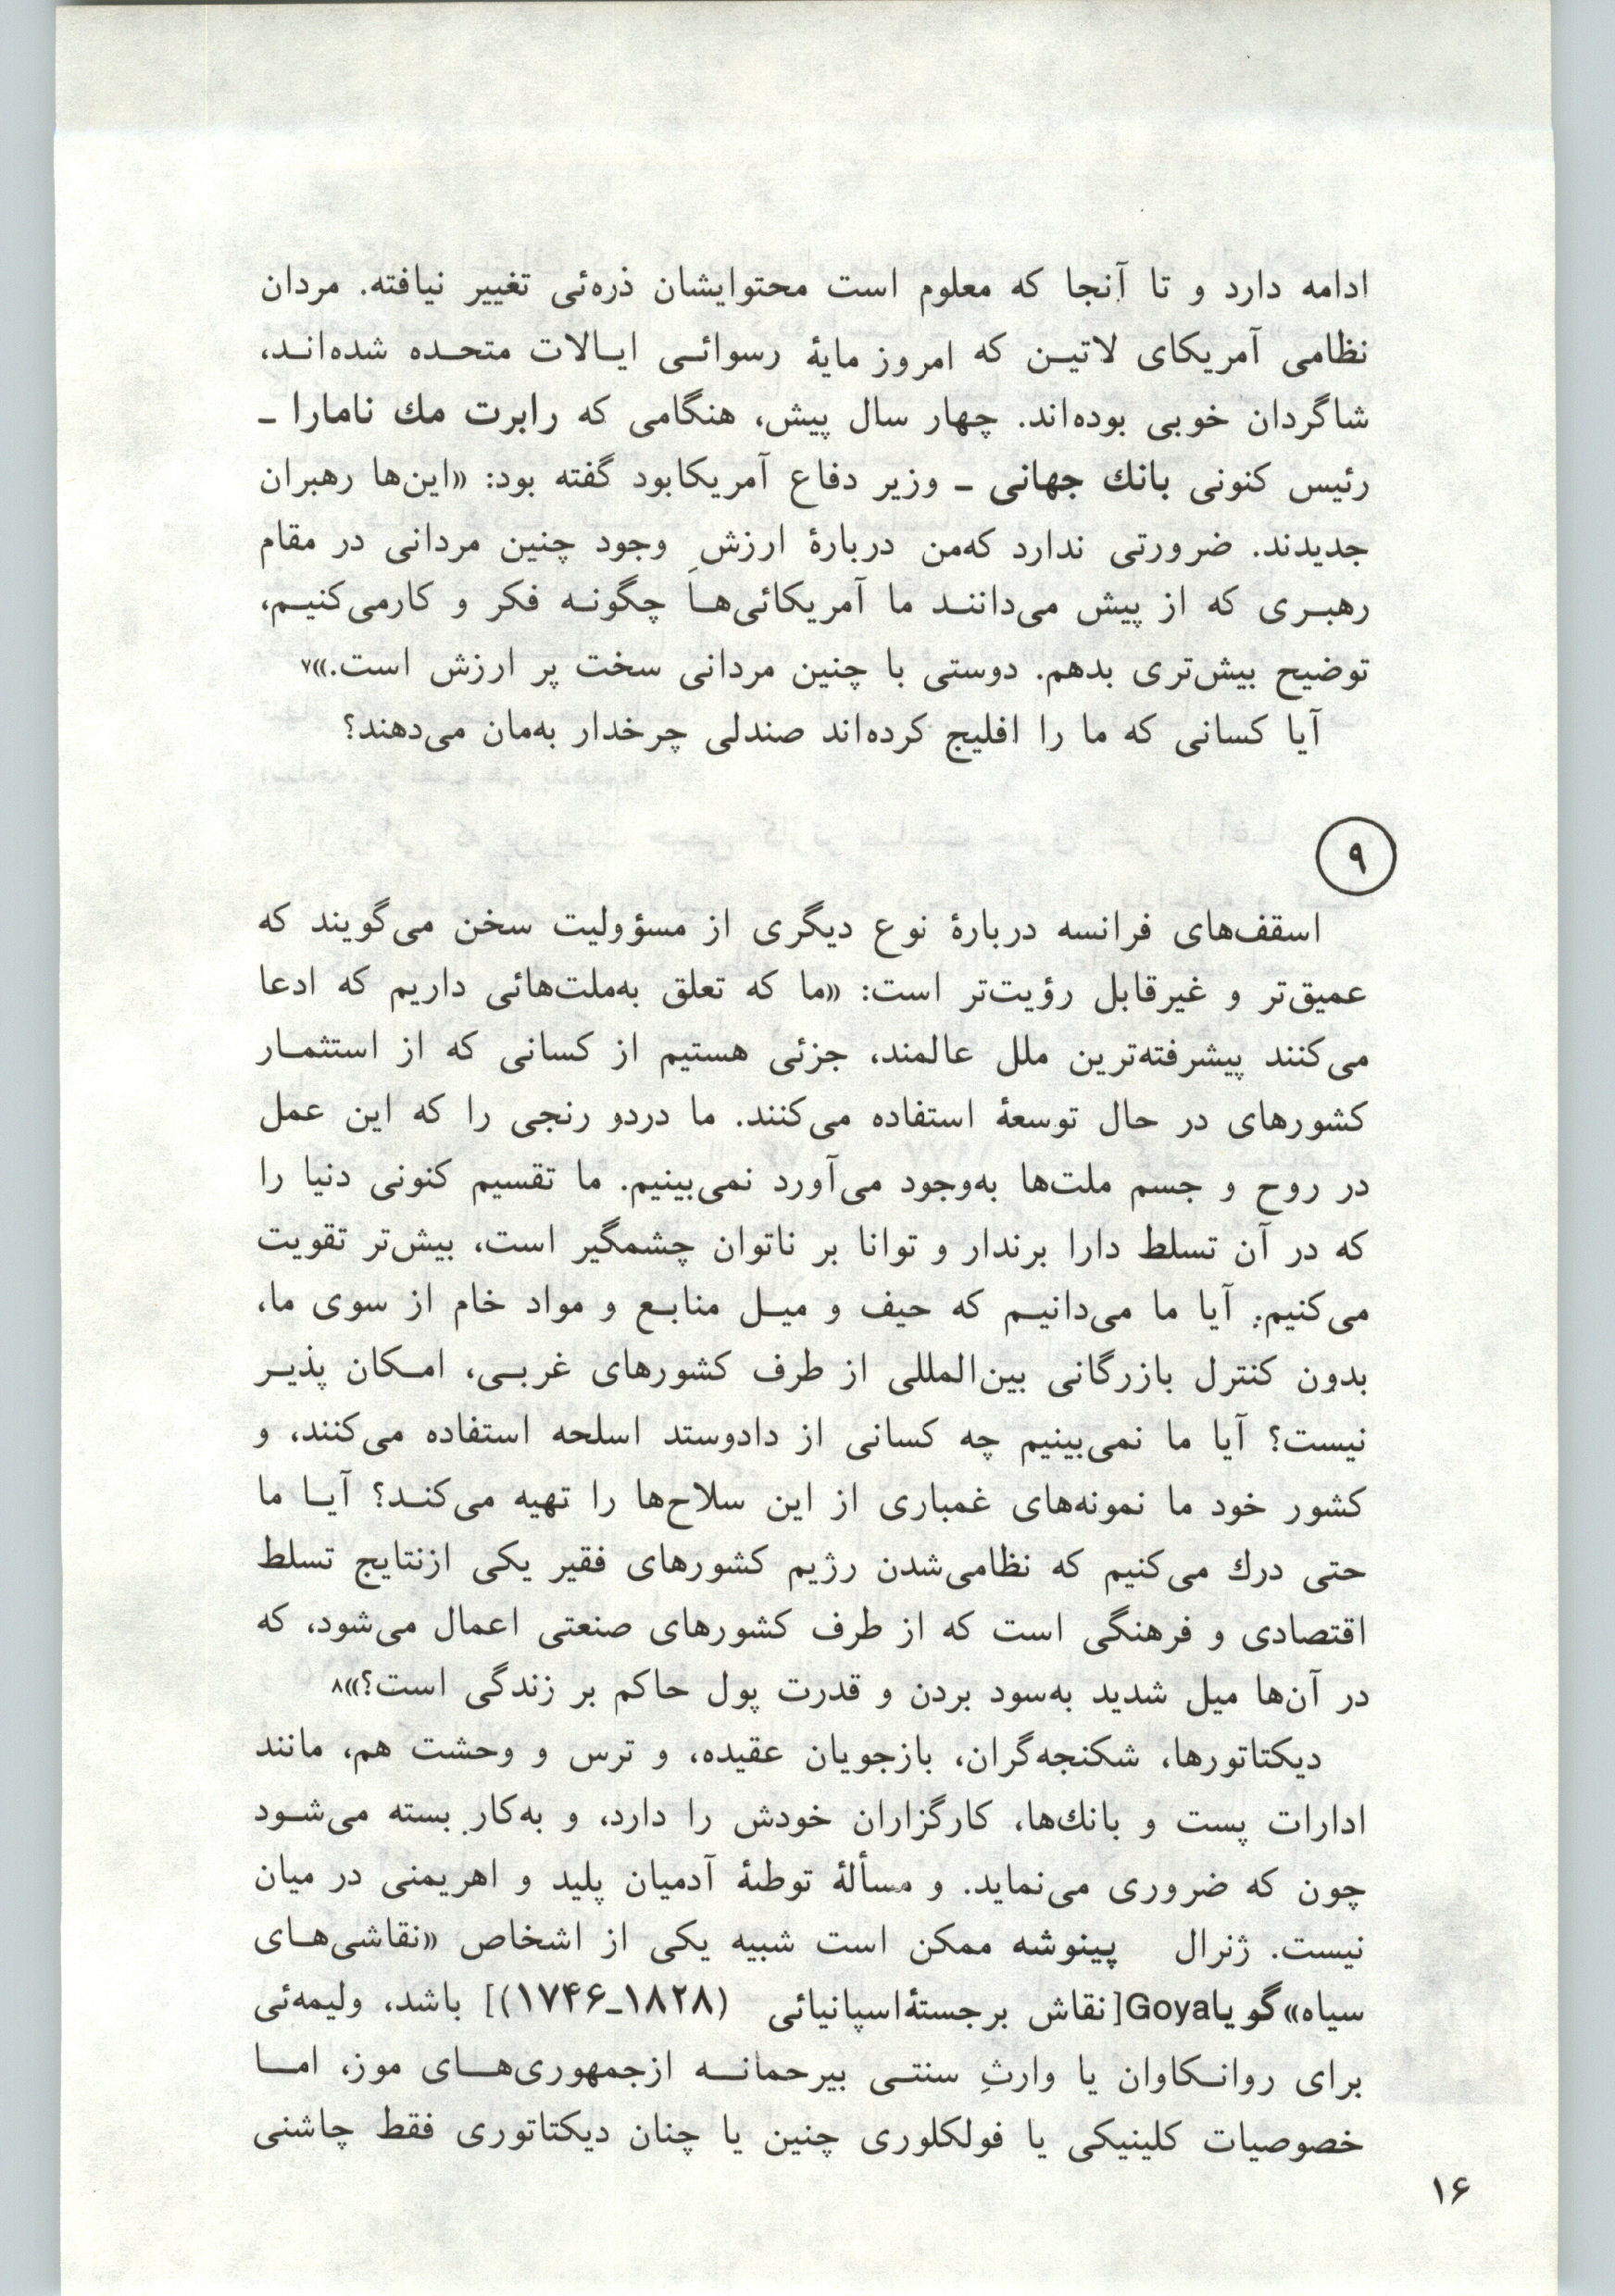 ادامه دارد و تا آنجا که معلوم است محتوایشان ذره‌ئی تغییر نیافته. مردان
نظامی آمریکای لاتیـن که امروز مایۀ رسوائـی ایـالات متحـده شده‌انـد،
شاگردان خوبی بوده‌اند. چهار سال پیش، هنگامی که رابرت مك نامارا ـ
رئیس کنونی بانك جهانی ـ وزیر دفاع آمریکابود گفته بود: «این‌ها رهبران
جدیدند. ضرورتی ندارد که‌من دربارۀ ارزشِ وجود چنین مردانی در مقام
رهبـری که از پیش می‌داننـد ما آمریکائی‌هـا چگونـه فکر و کارمی‌کنیـم،
توضیح بیش‌تری بدهم. دوستی با چنین مردانی سخت پر ارزش است.»۷
آیا کسانی که ما را افلیج کرده‌اند صندلی چرخدار به‌مان می‌دهند؟
۹
اسقف‌های فرانسه دربارۀ نوع دیگری از مسؤولیت سخن می‌گویند که
عمیق‌تر و غیرقابل رؤیت‌تر است: «ما که تعلق به‌ملت‌هائی داریم که ادعا
می‌کنند پیشرفته‌ترین ملل عالمند، جزئی هستیم از کسانی که از استثمـار
کشورهای در حال توسعۀ استفاده می‌کنند. ما دردو رنجی را که این عمل
در روح و جسم ملت‌ها به‌وجود می‌آورد نمی‌بینیم. ما تقسیم کنونی دنیا را
که در آن تسلط دارا برندار و توانا بر ناتوان چشمگیر است، بیش‌تر تقویت
می‌کنیم. آیا ما می‌دانیـم که حیف و میـل منابـع و مواد خام از سوی ما،
بدون کنترل بازرگانی بین‌المللی از طرف کشورهای غربـی، امـکان پذیـر
نیست؟ آیا ما نمی‌بینیم چه کسانی از دادوستد اسلحه استفاده می‌کنند، و
کشور خود ما نمونه‌های غمباری از این سلاح‌ها را تهیه می‌کنـد؟ آیـا ما
حتی درك می‌کنیم که نظامی‌شدن رژیم کشورهای فقیر یکی ازنتایج تسلط
اقتصادی و فرهنگی است که از طرف کشورهای صنعتی اعمال می‌شود، که
در آن‌ها میل شدید به‌سود بردن و قدرت پول حاکم بر زندگی است؟»۸
دیکتاتورها، شکنجه‌گران، بازجویان عقیده، و ترس و وحشت هم، مانند
ادارات پست و بانك‌ها، کارگزاران خودش را دارد، و به‌کار بسته می‌شـود
چون که ضروری می‌نماید. و مسألۀ توطئۀ آدمیان پلید و اهریمنی در میان
نیست. ژنرال پینوشه ممکن است شبیه یکی از اشخاص «نقاشی‌هـای
سیاه» گویاGoya[نقاش برجستۀاسپانیائی (۱۸۲۸ـ۱۷۴۶)] باشد، ولیمه‌ئی
برای روانـکاوان یا وارثِ سنتـی بیرحمانـه ازجمهوری‌هـای موز، امـا
خصوصیات کلینیکی یا فولکلوری چنین یا چنان دیکتاتوری فقط چاشنی
۱۶